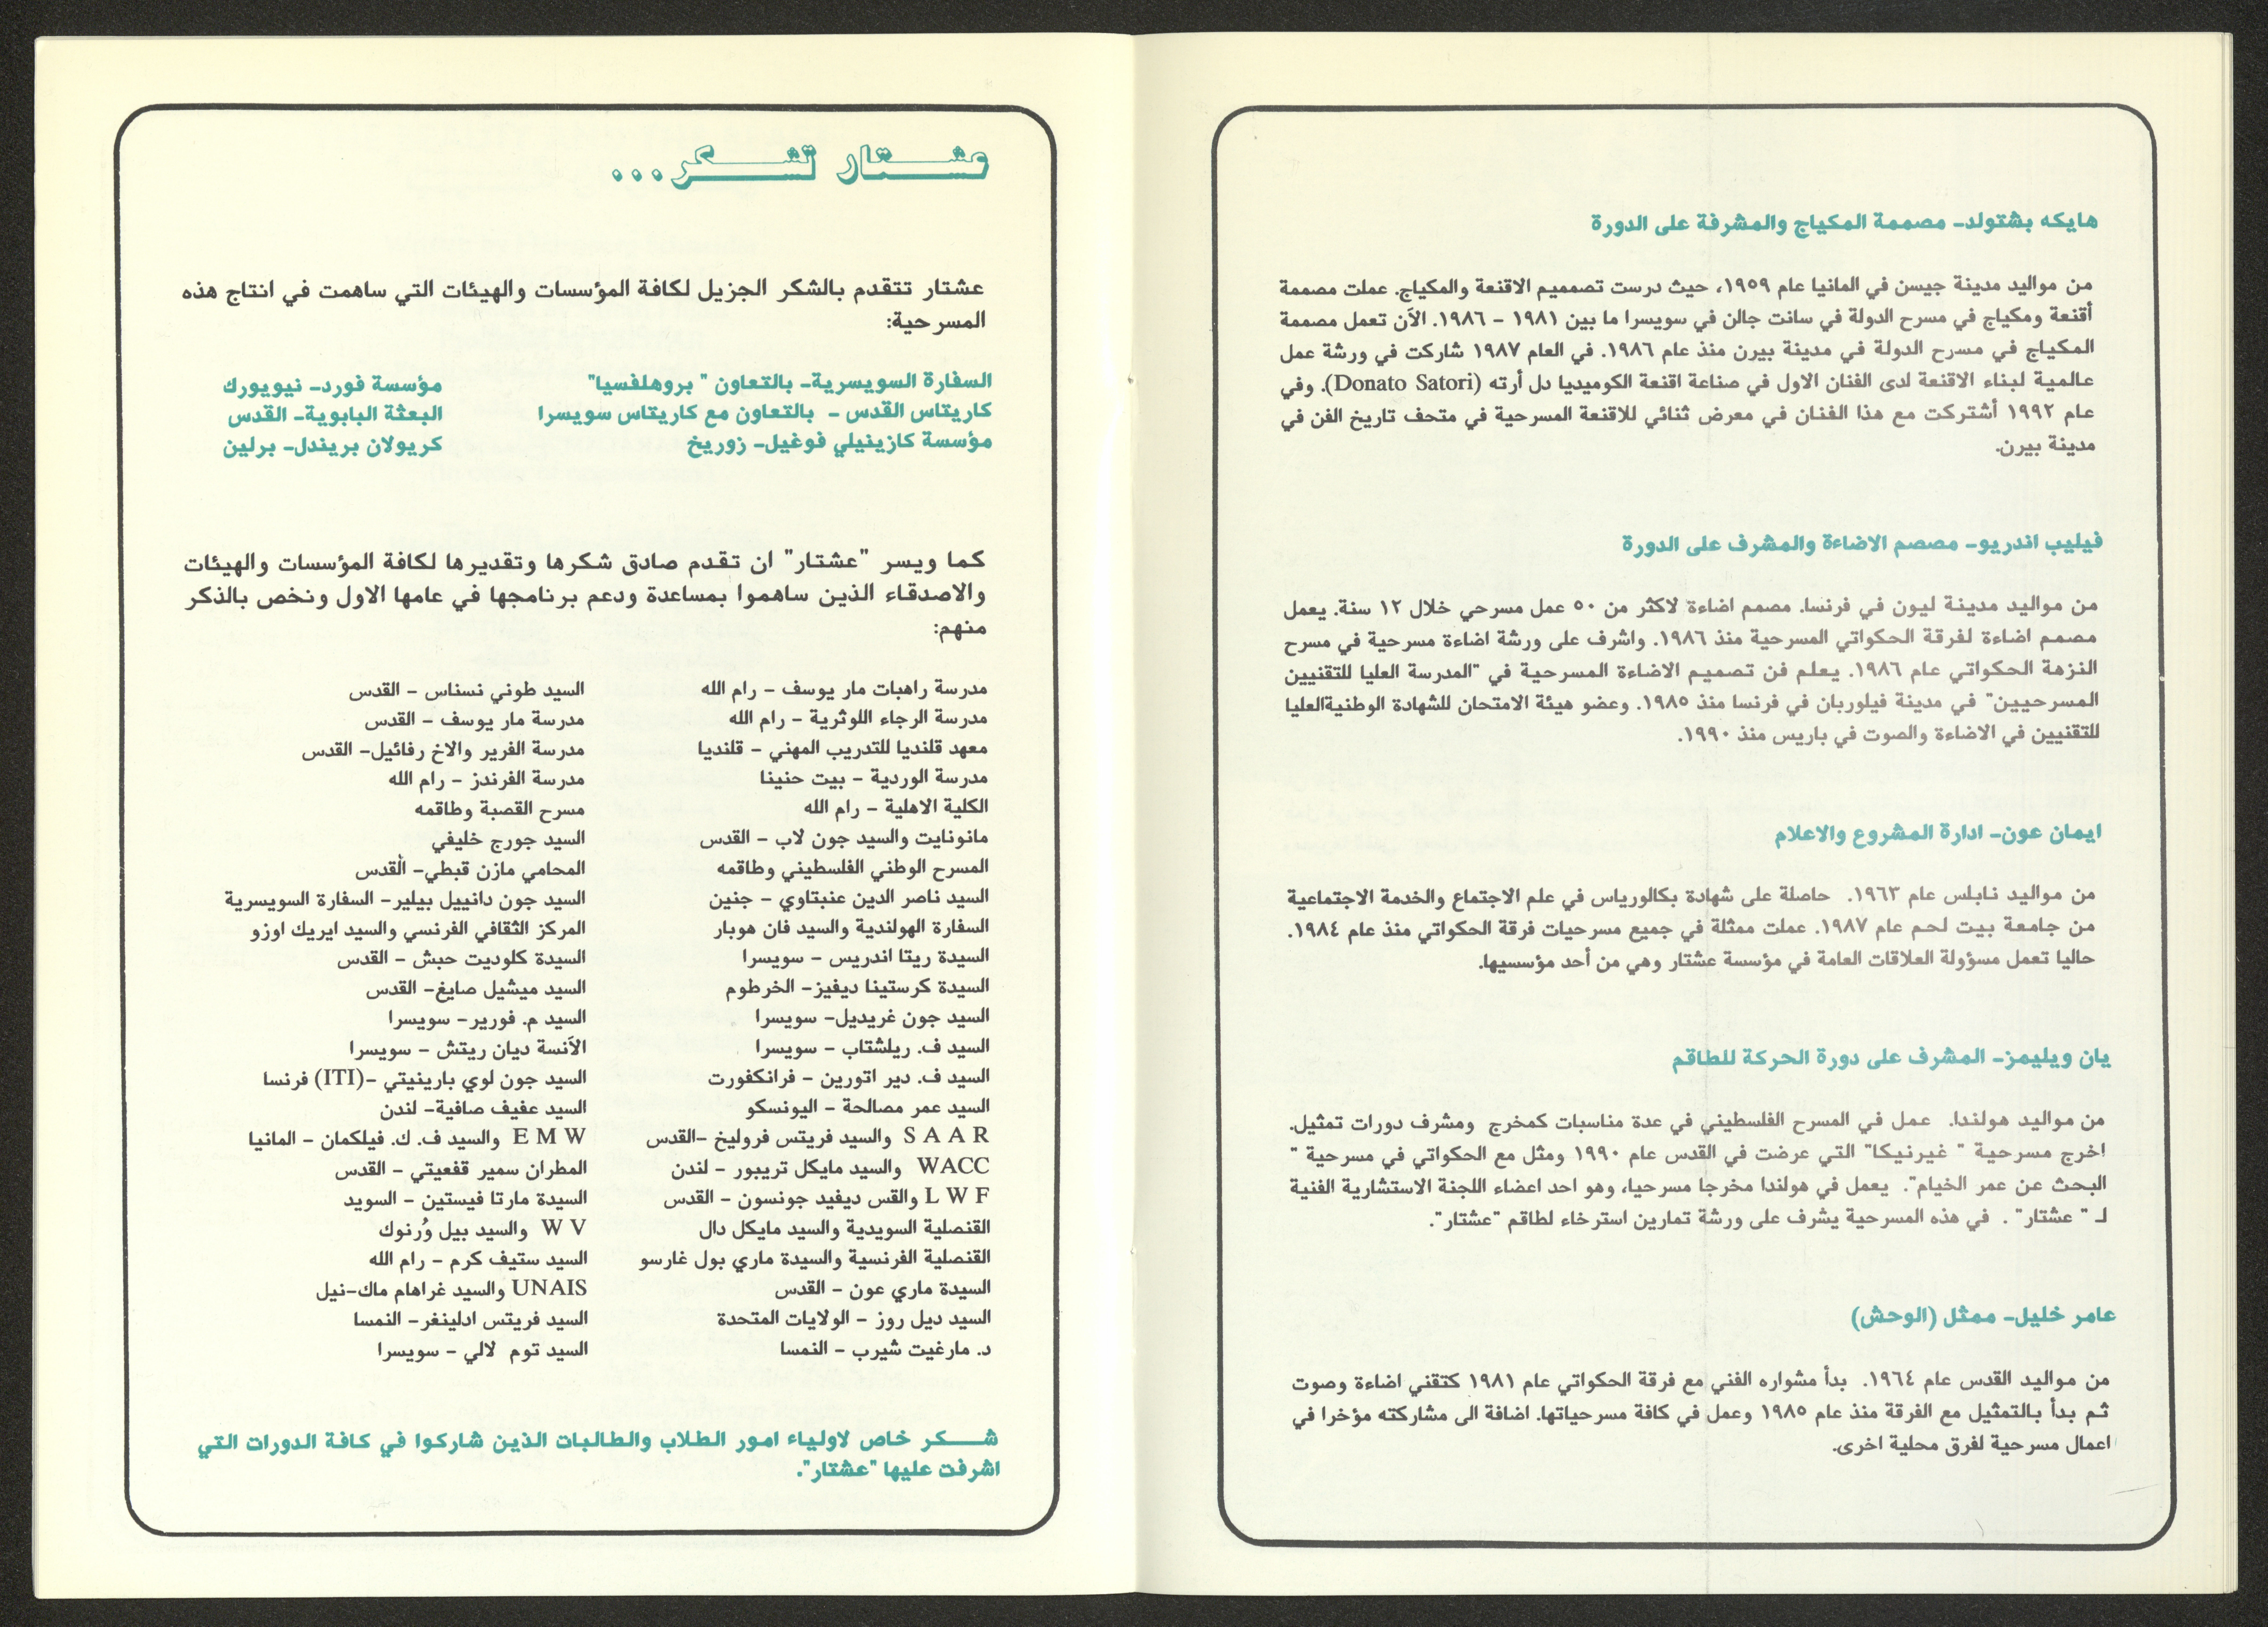 هايكه بشتولد- مصممة المكياج والمشرفة على الدورة
من مواليد مدينة جيسن في المانيا عام ١٩٥٩، حيث درست تصمميم الاقنعة والمكياج. عملت مصممة
أقنعة ومكياج في مسرح الدولة في سانت جالن في سويسرا ما بين ١٩٨١ – ١٩٨٦. الآن تعمل مصممة
المكياج في مسرح الدولة في مدينة بيرن منذ عام ١٩٨٦. في العام ١٩٨٧ شاركت في ورشة عمل
عالمية لبناء الاقنعة لدى الفنان الاول في صناعة اقنعة الكوميديا دل أرته (Donato Satori). وفي
عام ١٩٩٢ أشتركت مع هذا الفنان في معرض ثنائي للاقنعة المسرحية في متحف تاريخ الفن في
مدينة بيرن.
فيليب اندريو- مصصم الاضاءة والمشرف على الدورة
من مواليد مدينة ليون في فرنسا. مصمم اضاءة لاكثر من ٥٠ عمل مسرحي خلال ١٢ سنة. يعمل
مصمم اضاءة لفرقة الحكواتي المسرحية منذ ١٩٨٦. واشرف على ورشة اضاءة مسرحية في مسرح
النزهة الحكواتي عام ١٩٨٦. يعلم فن تصميم الاضاءة المسرحية في "المدرسة العليا للتقنيين
المسرحيين" في مدينة فيلوربان في فرنسا منذ ١٩٨٥. وعضو هيئة الامتحان للشهادة الوطنيةالعليا
للتقنيين في الاضاءة والصوت في باريس منذ ١٩٩٠.
ايمان عون- ادارة المشروع والاعلام
من مواليد نابلس عام ١٩٦٣. حاصلة على شهادة بكالورياس في علم الاجتماع والخدمة الاجتماعية
من جامعة بيت لحم عام ١٩٨٧. عملت ممثلة في جميع مسرحيات فرقة الحكواتي منذ عام ١٩٨٤.
حاليا تعمل مسؤولة العلاقات العامة في مؤسسة عشتار وهي من أحد مؤسسيها.
يان ويليمز- المشرف على دورة الحركة للطاقم
من مواليد هولندا. عمل في المسرح الفلسطيني في عدة مناسبات كمخرج ومشرف دورات تمثيل.
اخرج مسرحية " غيرنيكا" التي عرضت في القدس عام ١٩٩٠ ومثل مع الحكواتي في مسرحية "
البحث عن عمر الخيام". يعمل في هولندا مخرجا مسرحيا، وهو احد اعضاء اللجنة الاستشارية الفنية
لـ " عشتار" . في هذه المسرحية يشرف على ورشة تمارين استرخاء لطاقم "عشتار".
عامر خليل- ممثل (الوحش)
من مواليد القدس عام ١٩٦٤. بدأ مشواره الفني مع فرقة الحكواتي عام ١٩٨١ كتقني اضاءة وصوت
ثم بدأ بالتمثيل مع الفرقة منذ عام ١٩٨٥ وعمل في كافة مسرحياتها. اضافة الى مشاركته مؤخرا في
اعمال مسرحية لفرق محلية اخرى.
عشتار تشكر...
عشتار تتقدم بالشكر الجزيل لكافة المؤسسات والهيئات التي ساهمت في انتاج هذه
المسرحية:
السفارة السويسرية- بالتعاون " بروهلفسيا"
كاريتاس القدس - بالتعاون مع كاريتاس سويسرا
مؤسسة كازينيلي فوغيل- زوريخ
مؤسسة فورد- نيويورك
البعثة البابوية- القدس
كريولان بريندل- برلين
كما ويسر "عشتار" ان تقدم صادق شكرها وتقديرها لكافة المؤسسات والهيئات
والاصدقاء الذين ساهموا بمساعدة ودعم برنامجها في عامها الاول ونخص بالذكر
منهم:
مدرسة راهبات مار يوسف – رام الله
مدرسة الرجاء اللوثرية – رام الله
معهد قلنديا للتدريب المهني – قلنديا
مدرسة الوردية – بيت حنينا
الكلية الاهلية – رام الله
مانونايت والسيد جون لاب – القدس
المسرح الوطني الفلسطيني وطاقمه
السيد ناصر الدين عنبتاوي – جنين
السفارة الهولندية والسيد فان هوبار
السيدة ريتا اندريس – سويسرا
السيدة كرستينا ديفيز- الخرطوم
السيد جون غريديل- سويسرا
السيد ف. ريلشتاب – سويسرا
السيد ف. دير اتورين – فرانكفورت
السيد عمر مصالحة – اليونسكو
S A A R والسيد فريتس فروليخ –القدس
WACC والسيد مايكل تريبور – لندن
L W F والقس ديفيد جونسون – القدس
القنصلية السويدية والسيد مايكل دال
القنصلية الفرنسية والسيدة ماري بول غارسو
السيدة ماري عون – القدس
السيد ديل روز – الولايات المتحدة
د. مارغيت شيرب – النمسا
السيد طوني نسناس – القدس
مدرسة مار يوسف – القدس
مدرسة الفرير والاخ رفائيل- القدس
مدرسة الفرندز – رام الله
مسرح القصبة وطاقمه
السيد جورج خليفي
المحامي مازن قبطي- القدس
السيد جون دانييل بيلير- السفارة السويسرية
المركز الثقافي الفرنسي والسيد ايريك اوزو
السيدة كلوديت حبش – القدس
السيد ميشيل صايغ- القدس
السيد م. فورير- سويسرا
الآنسة ديان ريتش – سويسرا
السيد جون لوي بارينيتي –(ITI) فرنسا
السيد عفيف صافية- لندن
E M W والسيد ف. ك. فيلكمان – المانيا
المطران سمير قفعيتي – القدس
السيدة مارتا فيستين – السويد
W V والسيد بيل وُرنوك
السيد ستيف كرم – رام الله
UNAIS والسيد غراهام ماك-نيل
السيد فريتس ادلينغر- النمسا
السيد توم لالي – سويسرا
شكر خاص لاولياء امور الطلاب والطالبات الذين شاركوا في كافة الدورات التي
اشرفت عليها "عشتار".